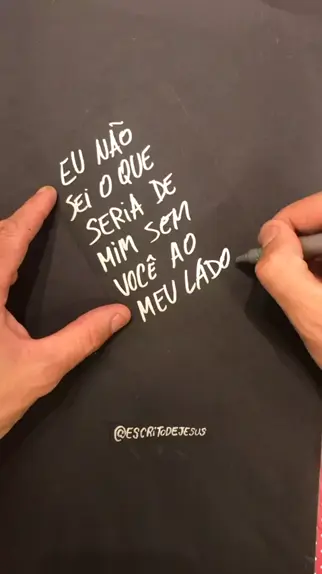 EU NÃO
SEI O QUE
SERIA DE
MIM SEM
VOCÊ AO
MEU LADO
@ESCRITODEJESUS